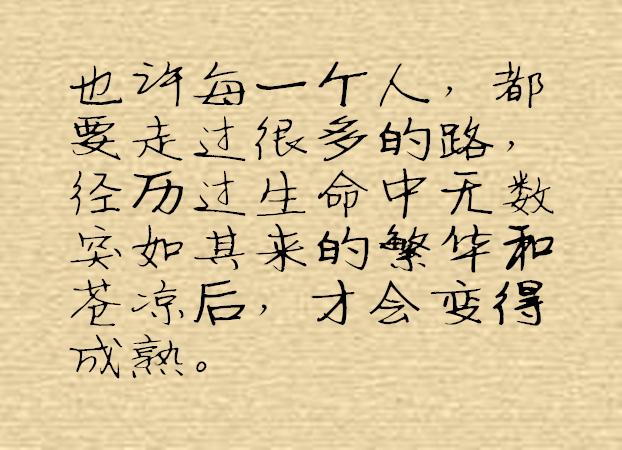 也许每一个人，都
要走过很多的路，
经历过生命中无数
突如其来的繁华和
苍凉后，才会变得
成熟。